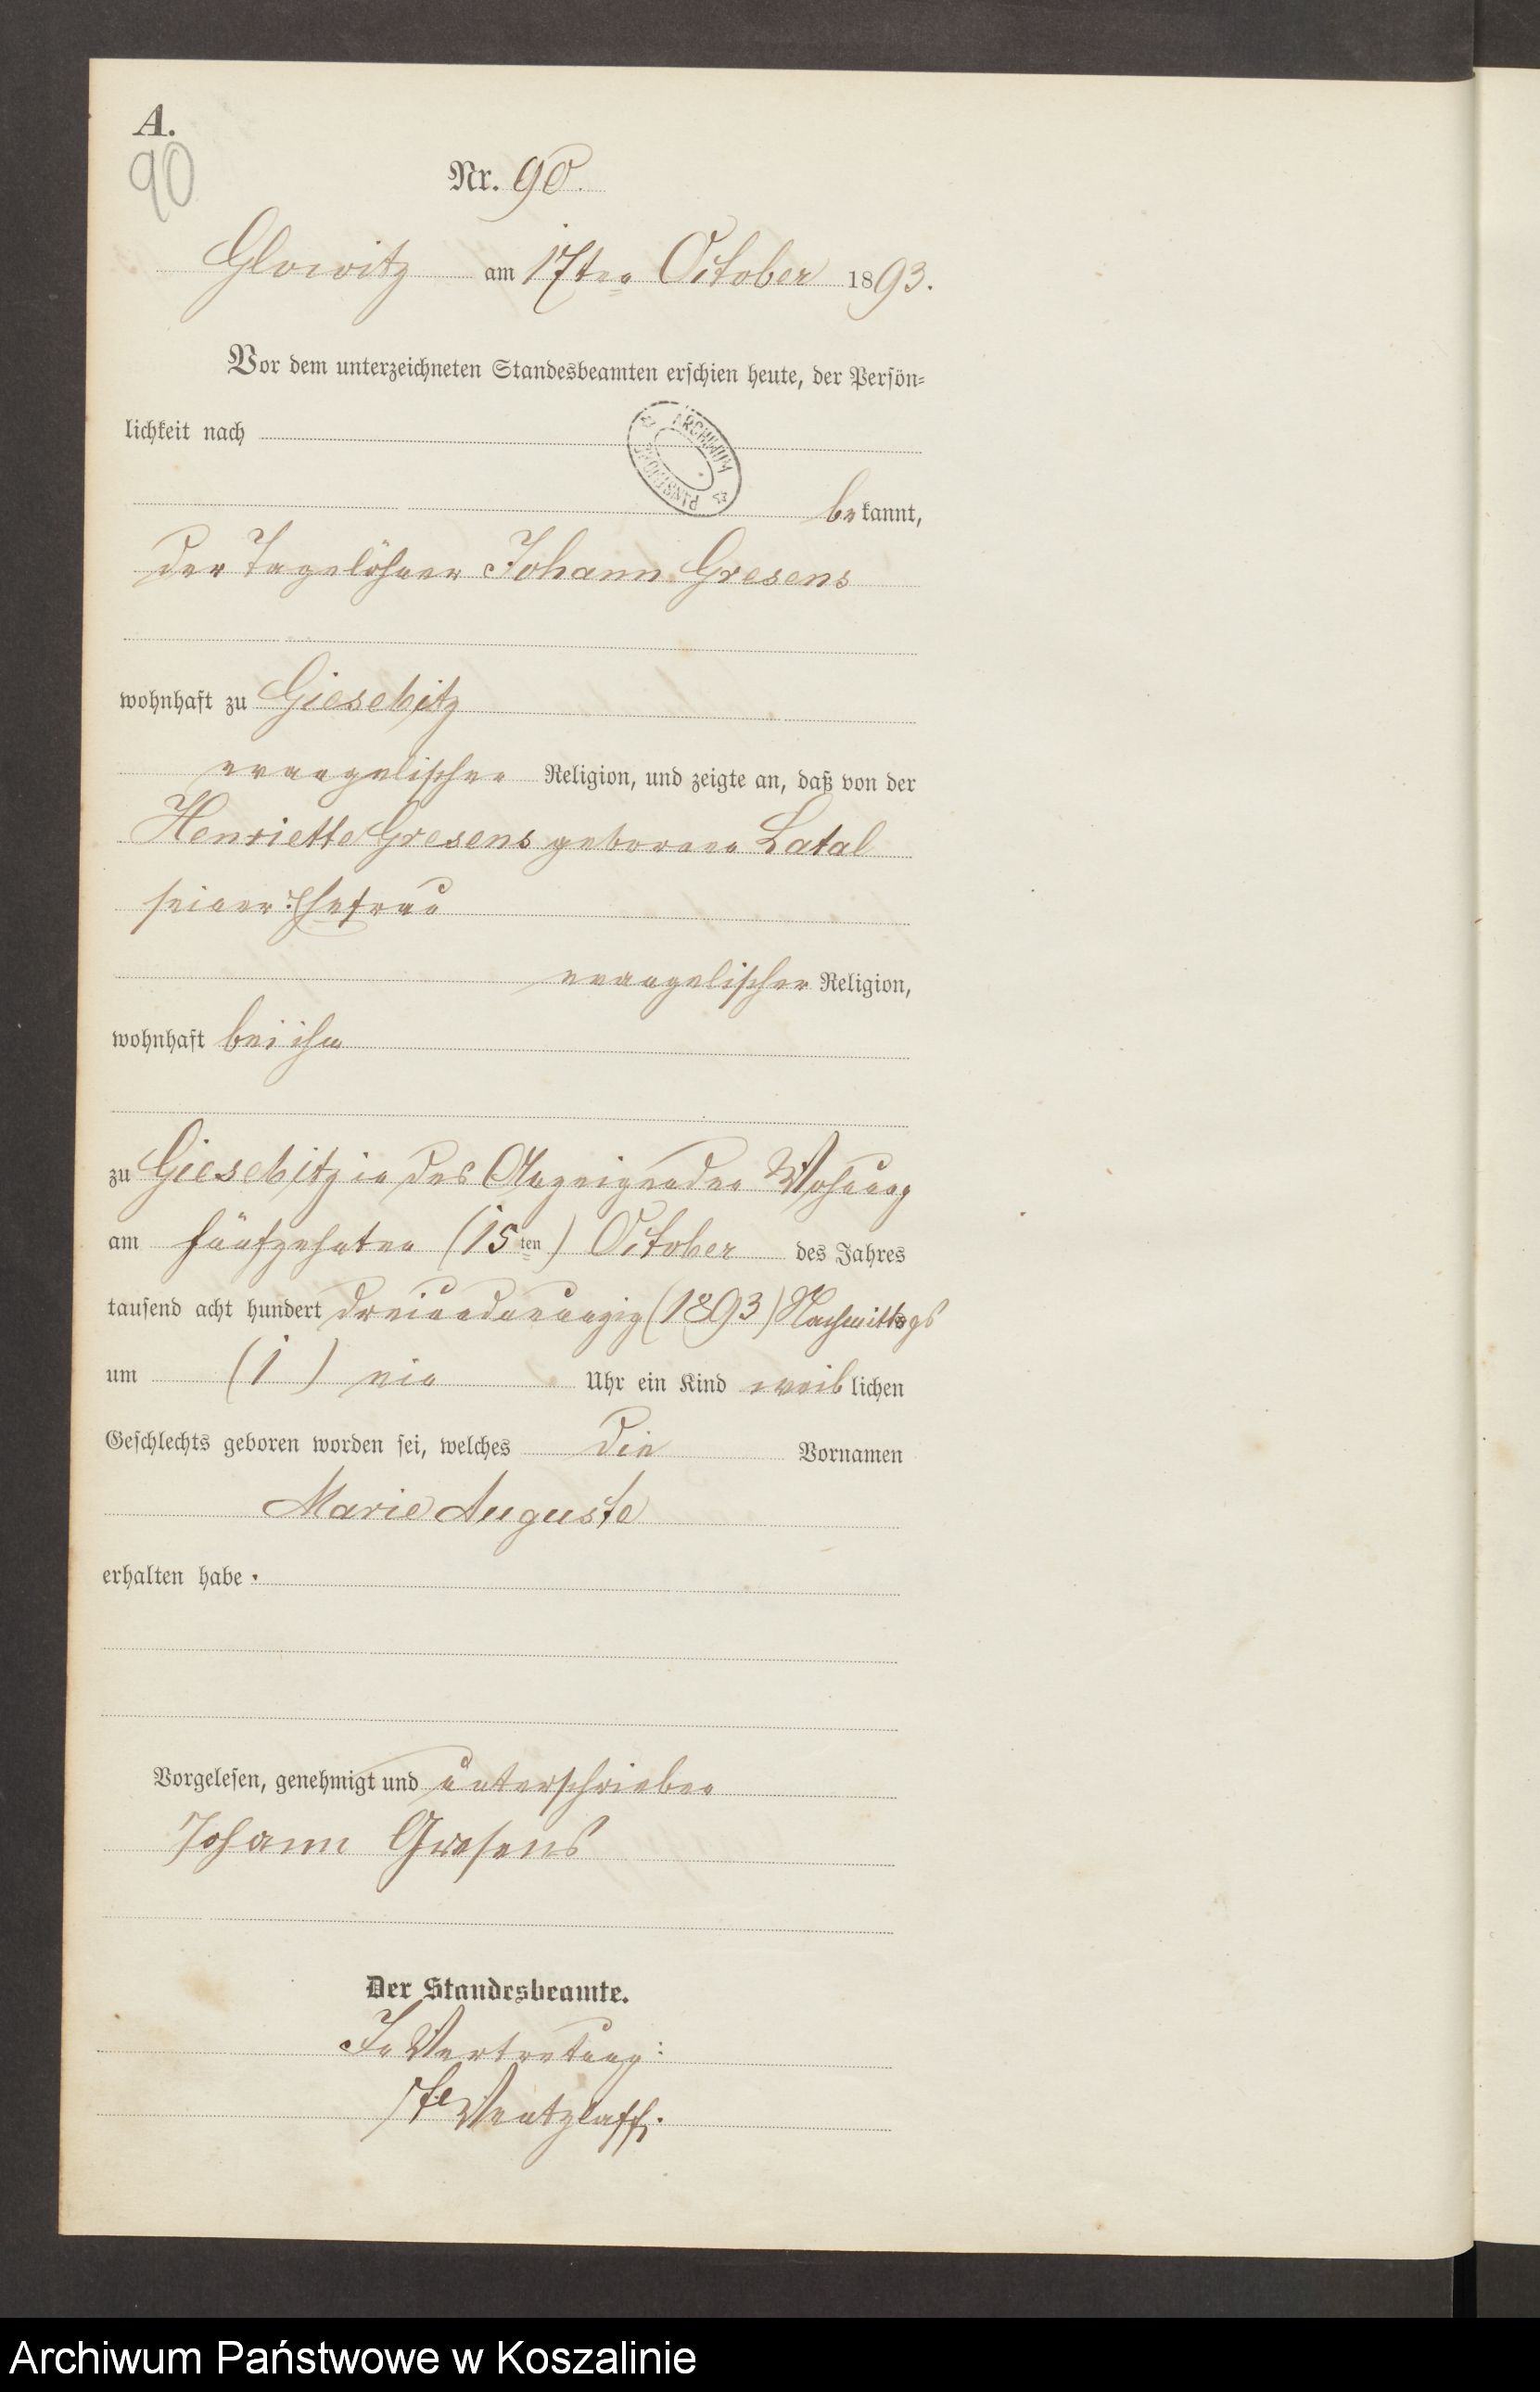 A.
90
Nr. 90.
Glowitz am 17ten October 1893.
Vor dem unterzeichneten Standesbeamten erschien heute, der Persön-
lichkeit nach
ARCHIWUM
PAŃSTWOWE
bekannt,
der Tagelöhner Johann Gresens
wohnhaft zu Giesebitz
evangelischen Religion, und zeigte an, daß von der
Henriette Gresens geborenen Latal
seiner Ehefrau
evangelischer Religion,
wohnhaft bei ihm
zu Giesebitz in des Anzeigenden Wohnung
am fünfzehnten (15ten) October des Jahres
tausend acht hundert dreiundneunzig (1893) Nachmittags
um (1) ein Uhr ein Kind weiblichen
Geschlechts geboren worden sei, welches die Vornamen
Marie Auguste
erhalten habe.
Vorgelesen, genehmigt und unterschrieben
Johann Gresens
Der Standesbeamte.
In Vertretung:
Wentzlaff.
Archiwum Państwowe w Koszalinie